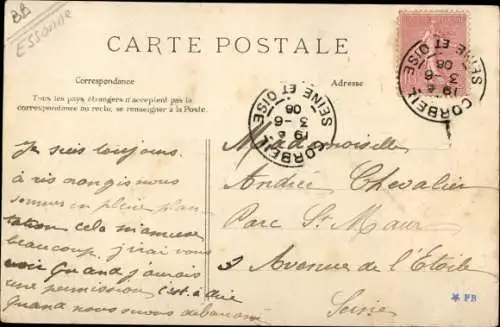 BB
ESSONNE
CARTE POSTALE
Correspondance
Adresse
Tous les pays étrangers n'acceptent pas la
correspondance au recto, se renseigner à la Poste.
CORBEIL
19
3 -6
06
SEINE ET OISE
CORBEIL
19
3 -6
06
SEINE ET OISE
Je suis toujours
à ris orangis nous
sommes en pleine plan-
tation cela m'amuse
beaucoup j'irai vous
voir quand j'aurais
une permission c'est à dire
quand nous serons
Mademoiselle
Andrée Chevalier
Parc St Maur
3 Avenue de l'Etoile
Seine
PB